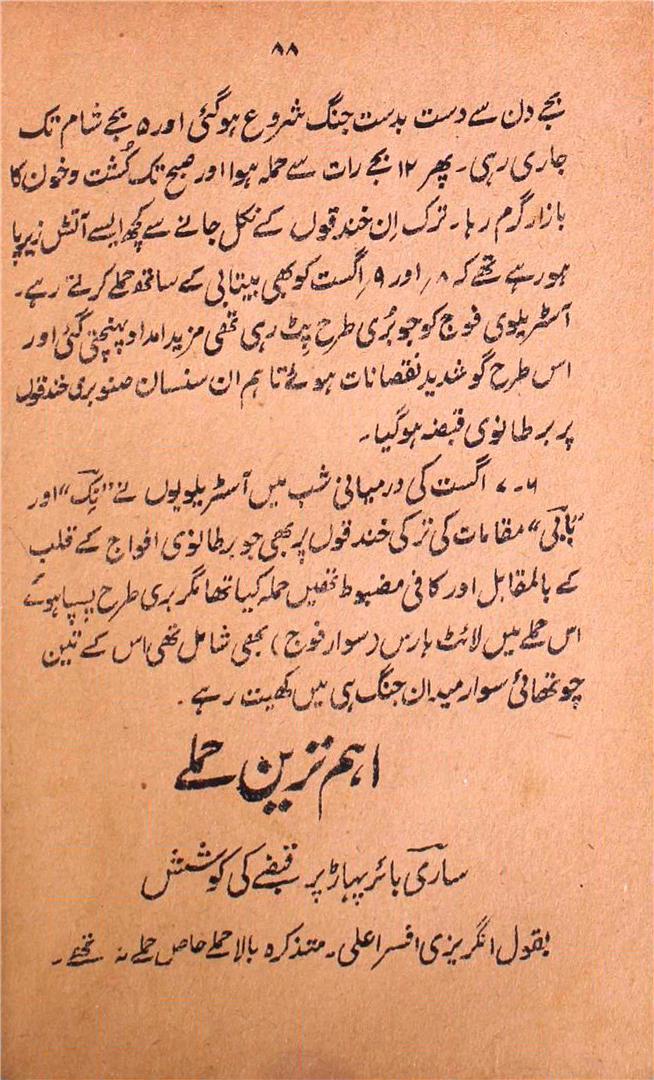 ۸۸
بجے دن سے دست بدست جنگ شروع ہوگئی اور ۵ بجے شام تک
جاری رہی۔ پھر ۱۲ بجے رات سے حملہ ہوا اور صبح تک کُشت و خون کا
بازار گرم رہا۔ ترک اِن خندقوں کے نکل جانے سے کچھ ایسے آتش زیر پا
ہو رہے تھے کہ ۸؍ اور ۹؍ اگست کو بھی بیتابی کے ساتھ حملے کرتے رہے۔
آسٹریلوی فوج کو جو بُری طرح پِٹ رہی تھی مزید امداد پہنچتی گئی اور
اس طرح گو شدید نقصانات ہوئے تاہم ان سنسان صنوبری خندقوں
پر برطانوی قبضہ ہوگیا۔
۶۔۷ اگست کی درمیانی شب میں آسٹریلویوں نے "نِک" اور
"بابی" مقامات کی ترکی خندقوں پر بھی جو برطانوی افواج کے قلب
کے بالمقابل اور کافی مضبوط تھیں حملہ کیا تھا مگر بری طرح پسپا ہوئے
اس حملے میں لائٹ ہارس (سوار فوج) بھی شامل تھی اس کے تین
چوتھائی سوار میدان جنگ ہی میں کھیت رہے۔
اہم ترین حملے
ساری بائر پہاڑ پر قبضے کی کوشش
بقول انگریزی افسر اعلی۔ متذکرہ بالا حملے خاص حملے نہ تھے۔